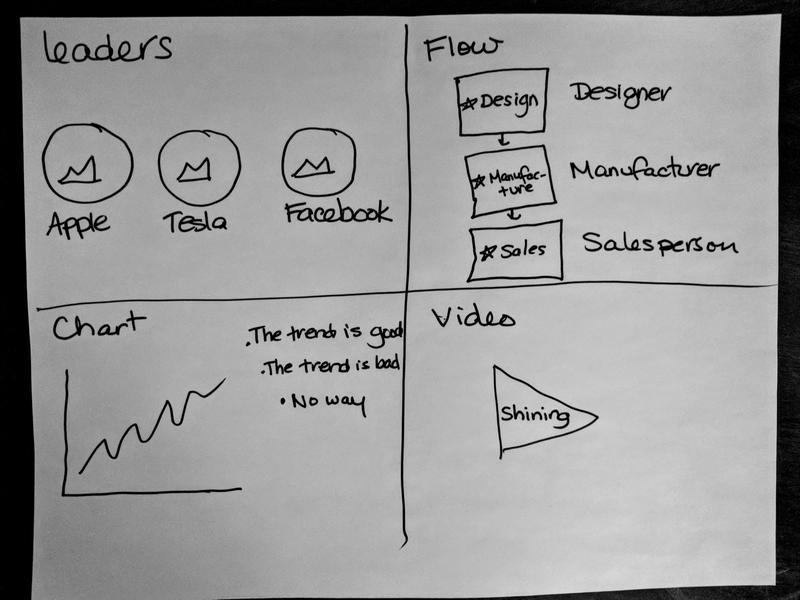 leaders
Apple
Tesla
Facebook
Flow
Design
Designer
Manufac-
ture
Manufacturer
Sales
Salesperson
Chart
.The trend is good
.The trend is bad
• No way
Video
Shining